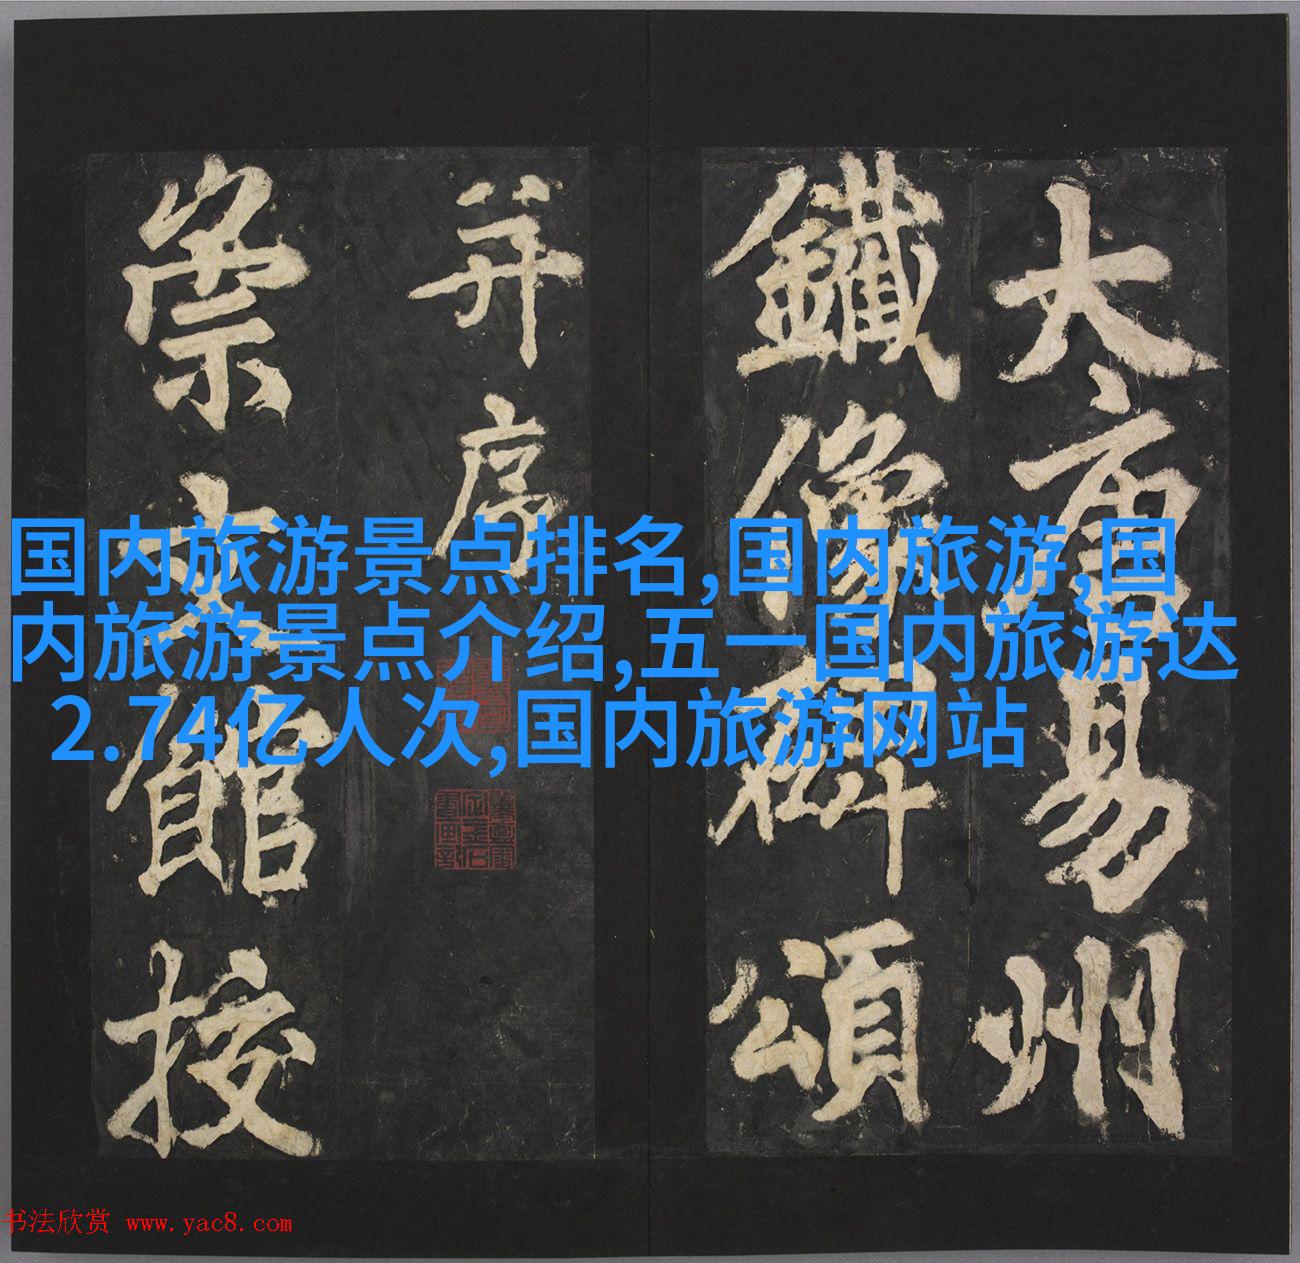 大唐易州
鐵像碑頌
并序
崇文館校
国内旅游景点排名,国内旅游,国
内旅游景点介绍,五一国内旅游达
2.74亿人次,国内旅游网站
书法欣赏 www.yac8.com